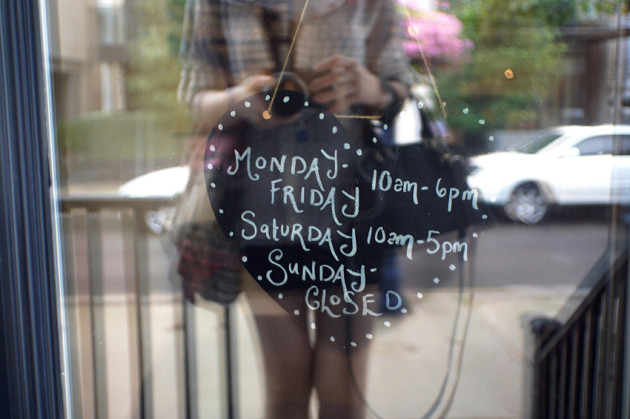 MONDAY-
FRIDAY 10am-6pm
SATURDAY 10am-5pm
SUNDAY-
CLOSED